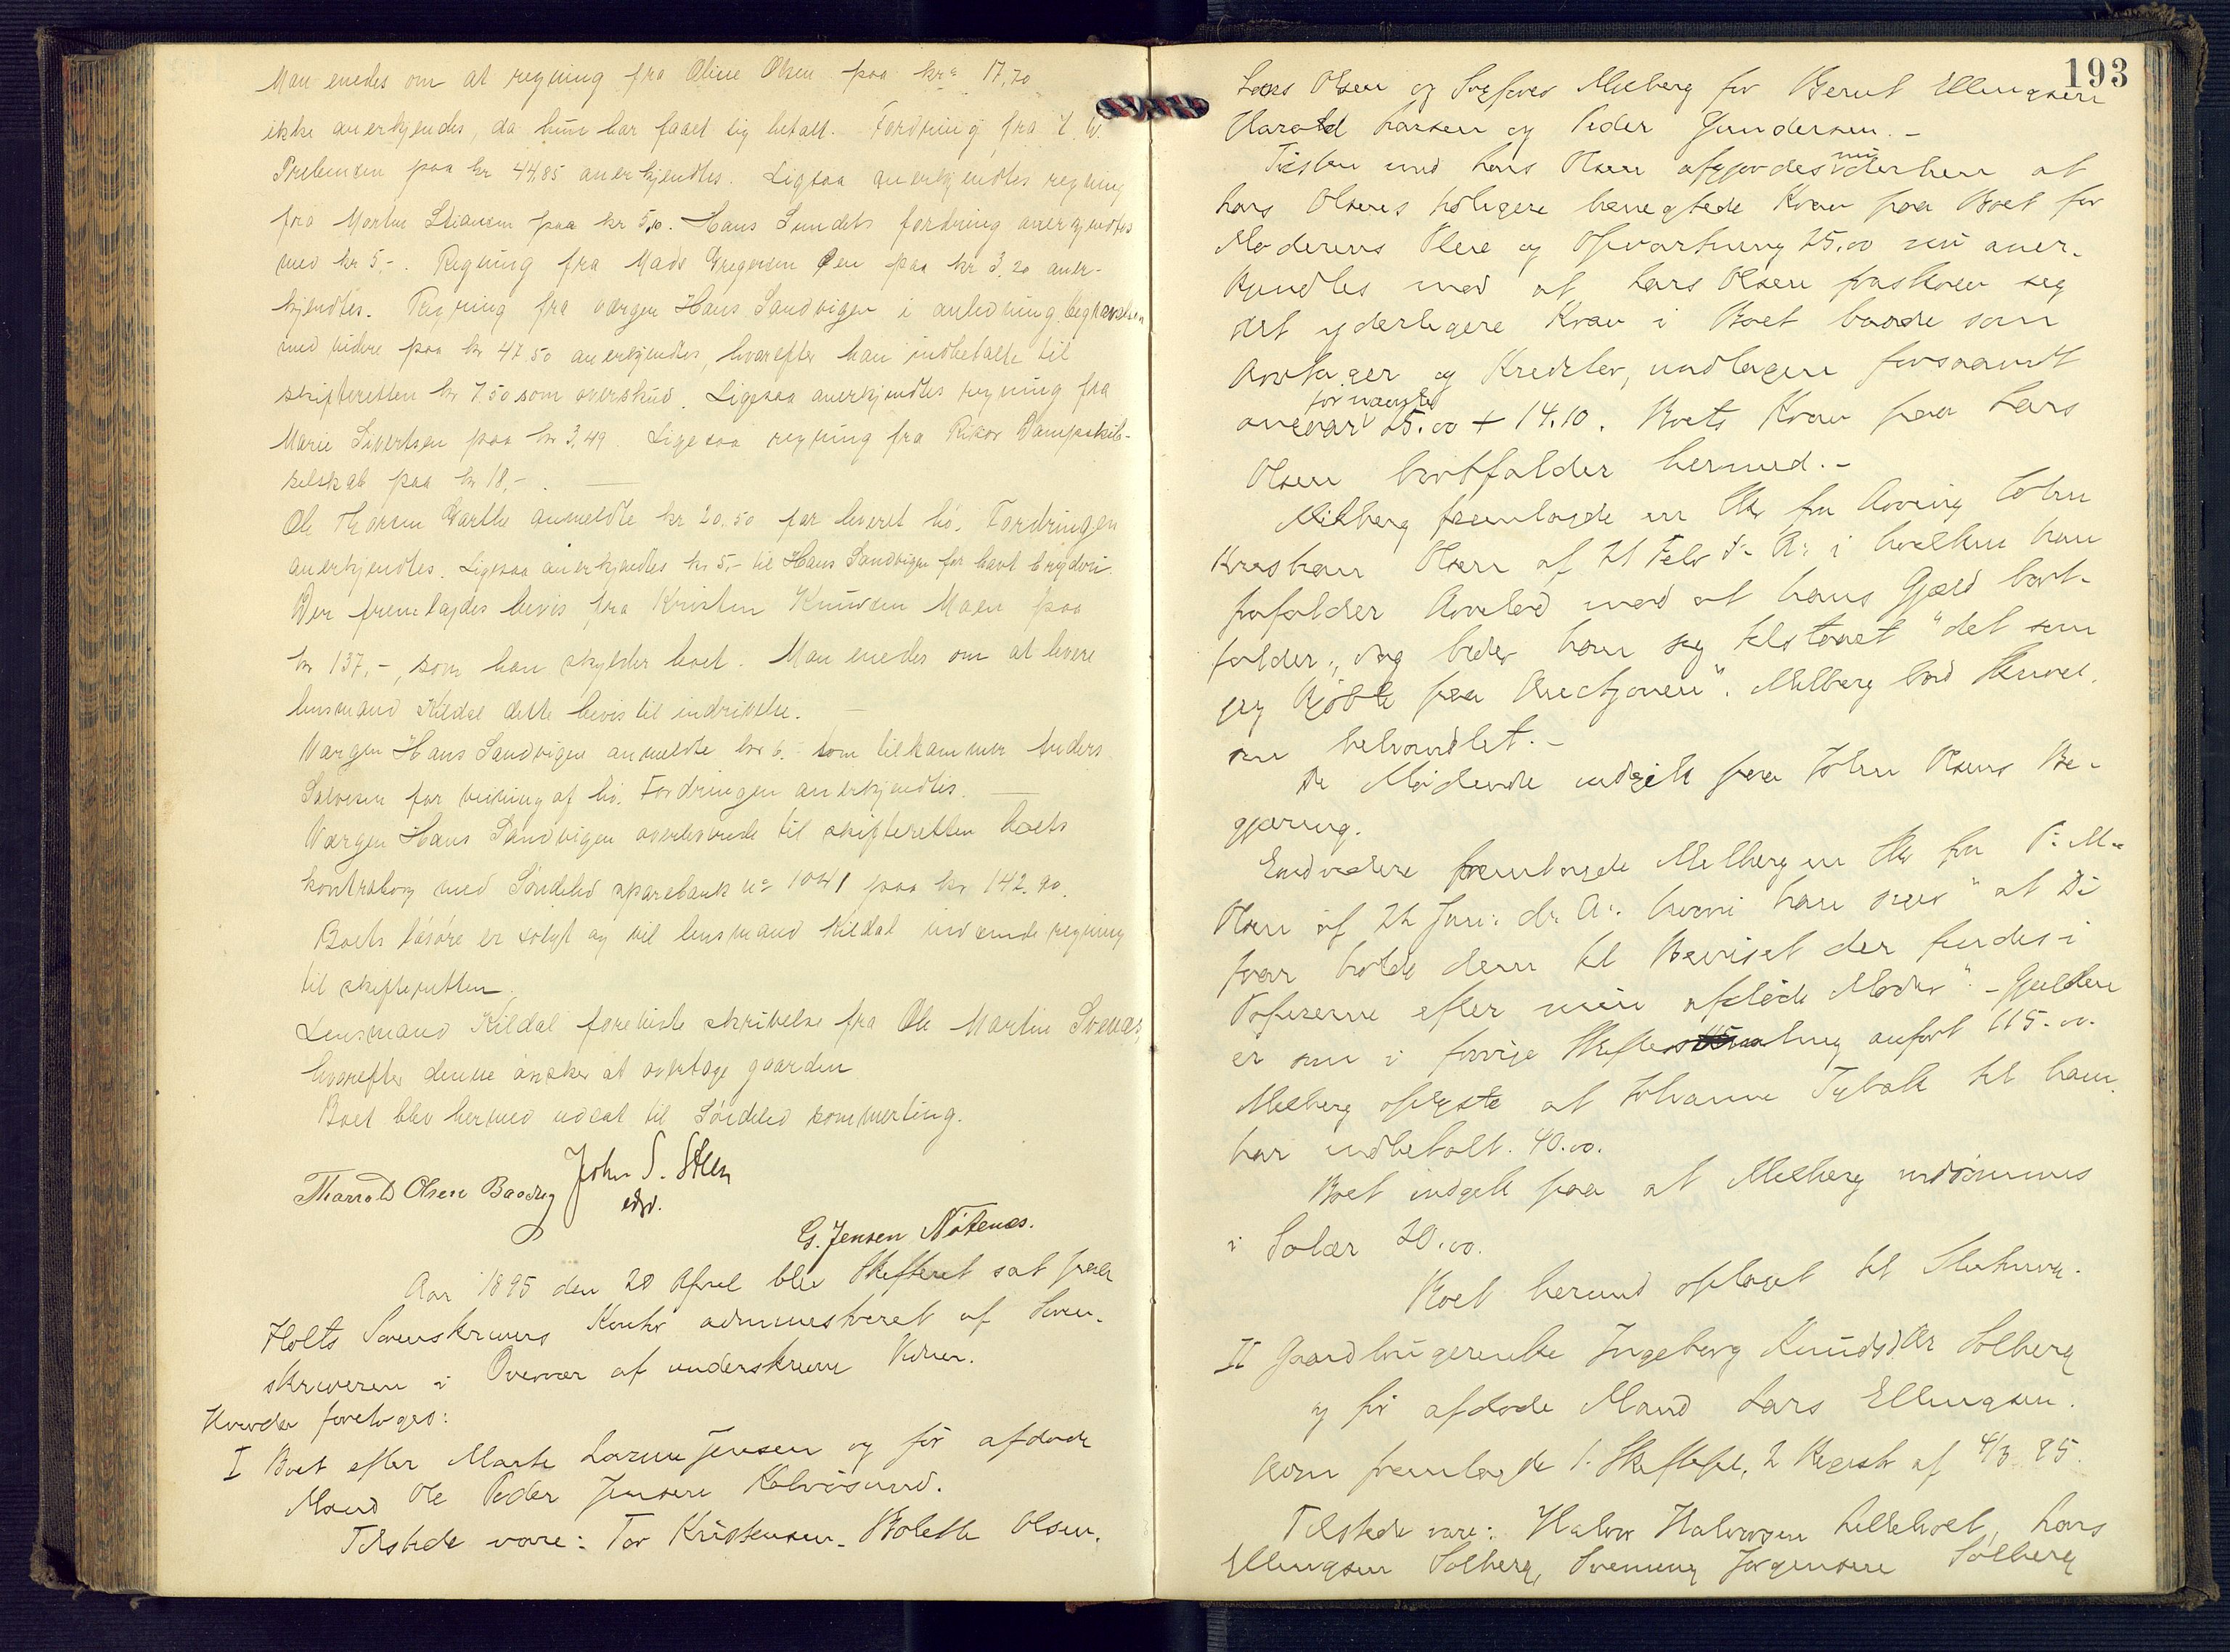 Man enedes om at regning fra Oline Olsen paa kr 17,70
ikke anerkjendes, da hun har faaet sig betalt. Fordring fra T. W.
Prebensen paa kr 44,85 anerkjendtes. Ligesaa anerkjendtes regning
fra Morten Stiansen paa kr 5,10. Hans Lundets fordring anerkjendtes
med kr 5,-. Regning fra Mads Gregersen Øen paa kr 3,20 aner-
kjendtes. Regning fra værgen Hans Sandvigen i anledning begravelsen
med videre paa kr 47.50 anerkjendtes, hvorefter han indbetalte til
skifteretten kr 7.50 som overskud. Ligesaa anerkjendtes regning fra
Marie Sivertsen paa kr 3,49. Ligesaa regning fra Risør Dampskibs-
selskab paa kr 18,-.
Ole Thorsen Garthe anmeldte kr 20,50 for leveret hø. Fordringen
anerkjendtes. Ligesaa anerkjendtes kr 5,- til Hans Sandvigen for havt bryderi.
Der fremlagdes bevis fra Kristen Knudsen Moen paa
kr 137,-, som han skylder boet. Man enedes om at levere
lensmand Kildal dette bevis til inddrivelse.
Værgen Hans Sandvigen anmeldte kr 6. som tilkommer Anders
Salvesen for veining af hø. Fordringen anerkjendtes.
Værgen Hans Sandvigen overleverede til skifteretten boets
kontrabog med Søndeled sparebank no 1041 paa kr 142.90.
Boets løsøre er solgt og vil lensmand Kildal indsende regning
til skifteretten.
Lensmand Kildal foreviste skrivelse fra Ole Martin Svenes,
hvorefter denne ønsker at overtage gaarden
Boet blev hermed udsat til Søndeled sommerting.
Tharald Olsen John S. Steen
edsv.
G. Jensen Nøtenes.
Aar 1895 den 20 April blev Skifteret sat paa
Holts Sorenskrivers Kontor administreret af Soren-
skriveren i Overvær af underskrevne Vidner.
Hvorda foretoges:
I Boet efter Marte Lovise Jensen og før afdøde
Mand Ole Peder Jensen Kalvøsund.
Tilstede vare: Tor Kristensen - Bolette Olsen.
193
Lars Olsen og Melberg for Bernt Ellingsen
Harald Larsen og Peder Gundersen. -
Tvisten med Lars Olsen afgjordes nu derhen at
Lars Olsens tidligere benegtede Krav paa Boet for
Moderens Pleie og Opvartning 25.00 nu aner-
kjendtes mod at Lars Olsen fraskrev seg
alt yderligere Krav i Boet baade som
Arvtager og Kreditor, undtagen forsaavidt
for nævnte 25.00 + 14.10. Boets Krav paa Lars
Olsen bortfalder hermed. -
Melberg fremlagde en Skr fra Arving John
Kristian Olsen af 21 Febr d. A. i hvilken han
frafalder Arvelod mod at hans Gjæld bort-
falder, og beder han sig tilstaaet "det som
jeg kjøbte paa Auctionen". Melberg
behandlet. -
De Mødende indgik paa John Olsens Be-
gjæring.
Endvidere fremlagde Melberg en Skr fra P. M.
Olsen af 22 Jan: d. A. hvori han "at Di
faar holde dem til Beviset der findes i
Papirerne efter min afdøde Moder". - Gjælden
er som i forrige Skiftesamling anført 115.00.
Melberg oplyste at Johanne til ham
har indbetalt 40.00.
Boet indgik paa at Melberg indrømmes
i Salær 20.00.
Boet hermed optaget til Slutning.
II Gaardbrugerenke Ingeborg Knudsdtr Solberg
og før afdøde Mand Lars Ellingsen.
fremlagde 1. Skiftefst, 2 Registr af 4/3 95.
Tilstede vare: Halvor Halvorsen Lars
Ellingsen Solberg, Svenung Jørgensen Solberg